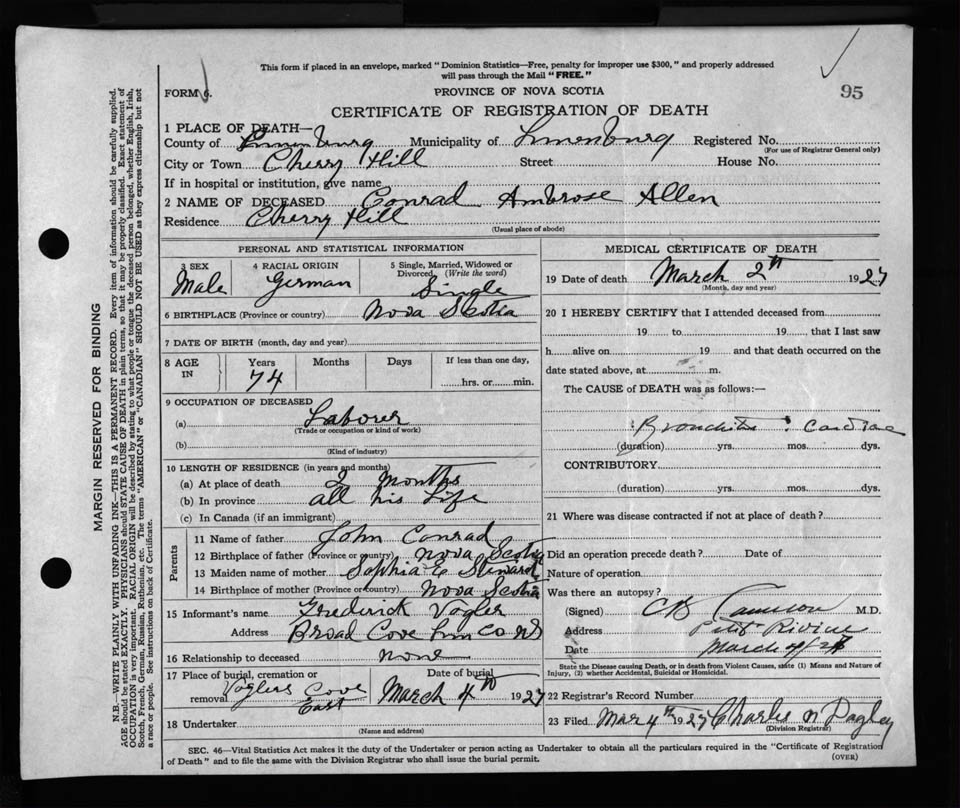 This form if placed in an envelope, marked "Dominion Statistics—Free, penalty for improper use $300," and properly addressed
will pass through the Mail "FREE."
FORM 6.
PROVINCE OF NOVA SCOTIA
95
CERTIFICATE OF REGISTRATION OF DEATH
1 PLACE OF DEATH—
County of Lunenburg Municipality of Lunenburg Registered No.
(For use of Registrar General only)
City or Town Cherry Hill Street House No.
If in hospital or institution, give name
2 NAME OF DECEASED Conrad Ambrose Allen
Residence Cherry Hill
(Usual place of abode)
PERSONAL AND STATISTICAL INFORMATION
3 SEX 4 RACIAL ORIGIN 5 Single, Married, Widowed or
Divorced (Write the word)
Male German Single
6 BIRTHPLACE (Province or country) Nova Scotia
7 DATE OF BIRTH (month, day and year)
8 AGE IN Years Months Days If less than one day,
74 hrs. or min.
9 OCCUPATION OF DECEASED
(a) Laborer
(Trade or occupation or kind of work)
(b)
(Kind of industry)
10 LENGTH OF RESIDENCE (in years and months)
(a) At place of death 2 months
(b) In province all his Life
(c) In Canada (if an immigrant)
Parents
11 Name of father John Conrad
12 Birthplace of father (Province or country) Nova Scotia
13 Maiden name of mother Sophia E
14 Birthplace of mother (Province or country) Nova Scotia
15 Informant's name Frederick Vogler
Address Broad Cove Lun Co NS
16 Relationship to deceased none
17 Place of burial, cremation or removal Voglers Cove East
Date of burial March 4th 1927
18 Undertaker
(Name and address)
MEDICAL CERTIFICATE OF DEATH
19 Date of death March 2th 1927
(Month, day and year)
20 I HEREBY CERTIFY that I attended deceased from
19 to 19 that I last saw
h alive on 19 and that death occurred on the
date stated above, at m.
The CAUSE of DEATH was as follows:—
Bronchitis : Cardiac
(duration) yrs. mos. dys.
CONTRIBUTORY
(duration) yrs. mos. dys.
21 Where was disease contracted if not at place of death?
Did an operation precede death? Date of
Nature of operation
Was there an autopsy?
(Signed) CB Cameron M.D.
Address Petite Riviere
Date March 4/27
State the Disease causing Death, or in death from Violent Causes, state (1) Means and Nature of
Injury, (2) whether Accidental, Suicidal or Homicidal.
22 Registrar's Record Number
23 Filed Mar 4th 1927 Charles
(Division Registrar)
SEC. 46—Vital Statistics Act makes it the duty of the Undertaker or person acting as Undertaker to obtain all the particulars required in the "Certificate of Registration
of Death" and to file the same with the Division Registrar who shall issue the burial permit.
(OVER)
MARGIN RESERVED FOR BINDING
N.B.—WRITE PLAINLY WITH UNFADING INK—THIS IS A PERMANENT RECORD. Every item of information should be carefully supplied.
AGE should be stated EXACTLY. PHYSICIANS should STATE CAUSE OF DEATH in plain terms, so that it may be properly classified. Exact statement of
OCCUPATION is very important. RACIAL ORIGIN will be described by stating to what people or tongue the deceased person belonged, whether English, Irish,
Scotch, French, German, Russian, Ruthenian, etc. The terms "AMERICAN" or "CANADIAN" SHOULD NOT BE USED as they express citizenship but not
a race or people. See instructions on back of Certificate.